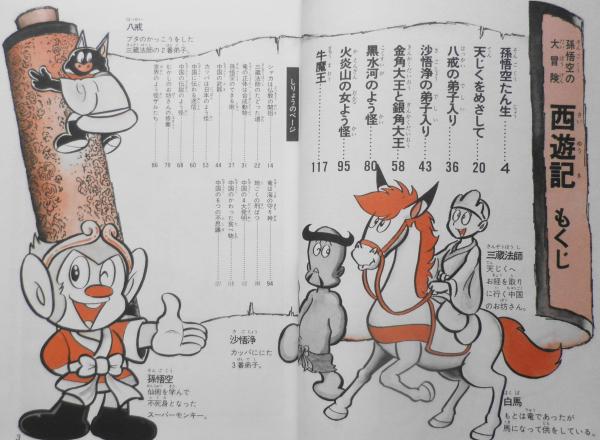 孫悟空の
大冒険
西遊記 もくじ
孫悟空たん生 4
天じくをめざして 20
八戒の弟子入り 36
沙悟浄の弟子入り 43
金角大王と銀角大王 58
黒水河のよう怪 80
火炎山の女よう怪 95
牛魔王 117
しりょうのページ
シャカは仏教の開祖 14
三蔵法師のたどった道 22
竜の正体は合成動物 31
孫悟空のできる術 37
中国の武器 44
カッパは日本のよう怪 53
中国に伝わる迷信 60
中国の伝説のよう怪 68
むかしのお坊さんの意味 78
世界のよう怪ザルたち 86
竜は海の守り神 94
地ごくの刑ばつ
中国の4大発明
中国のかわった食べ物
中国の6つの不思議
八戒
ブタのかっこうをした
三蔵法師の2番弟子。
孫悟空
仙術を学んで
不死身となった
スーパーモンキー。
沙悟浄
カッパににた
3番弟子。
三蔵法師
天じくへ
お経を取り
に行く中国
のお坊さん。
白馬
もとは竜であったが
馬になって供をしている。
3